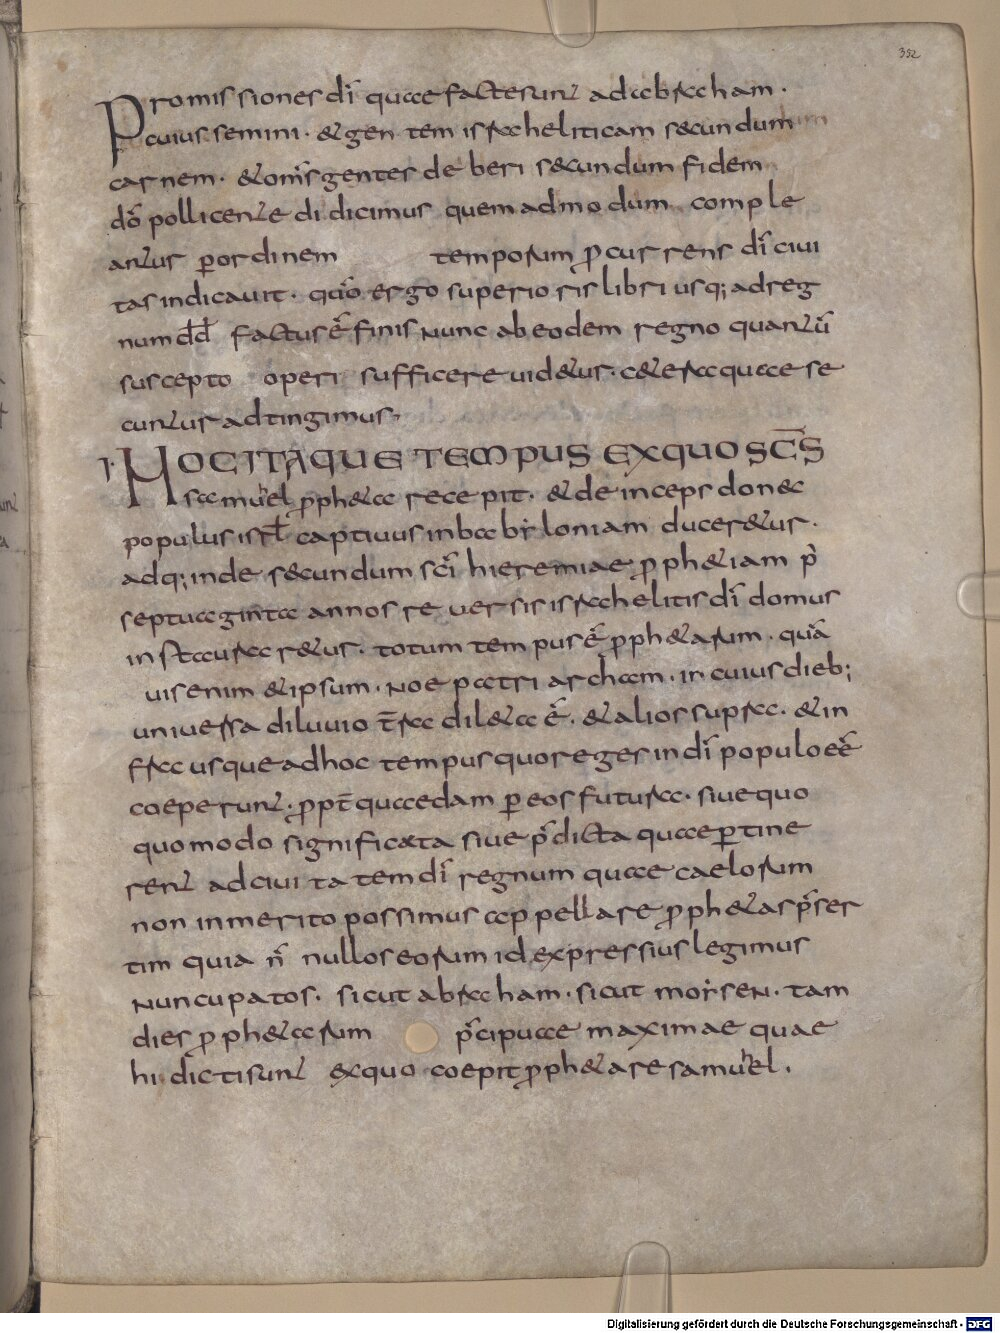 352
Promissiones dī quae factesunt adabraham.
cuius semini. & gentem israheliticam secundum
carnem. & om̄s gentes deberi secundum fidem
dō pollicente didicimus quemadmodum comple
antur ꝑordinem temporum ꝓcurrens dī ciui
tas indicauit. qūo ergo superioris libri usq; adreg
num dd̄ factus ē finis Nunc abeodem regno quantū
suscepto operi sufficere uid&ur. c&eraquaese
cuntur adtingimus,
I. HOC ITAQUE TEMPUS EXQUO SC̄S
samuhel ꝓph&a recepit. & deinceps donec
populus isrl̄ captiuus inbabyloniam ducer&ur.
adq; inde secundum sc̄i hieremiae ꝓph&iam p̄
septuaginta annos reuersis israhelitis dī domus
instaurar&ur. totum tempus ē ꝓph&arum. quā
uis enim & ipsum. Noe patri archam. in cuius dieb;
uniuersa diluuio t̄ra dil&a ē. & alios supra. & in
fra usque adhoc tempus quo reges in dī populo eē
coeperunt. ꝓpt̄ quaedam ꝑ eos futura. siue quo
quomodo significata siue p̄dicta quaeꝑtine
rent adciuitatem dī regnum quae caelorum
non inmerito possimus appellare ꝓph&as p̄ser
tim quia n̄ nullos eorum id expressius legimus
Nuncupatos. sicut abraham. sicut moysen. tam
dies ꝓph&arum p̄cipuae maximae quae
hi dicti sunt exquo coepit ꝓph&are samuhel.
Digitalisierung gefördert durch die Deutsche Forschungsgemeinschaft - DFG